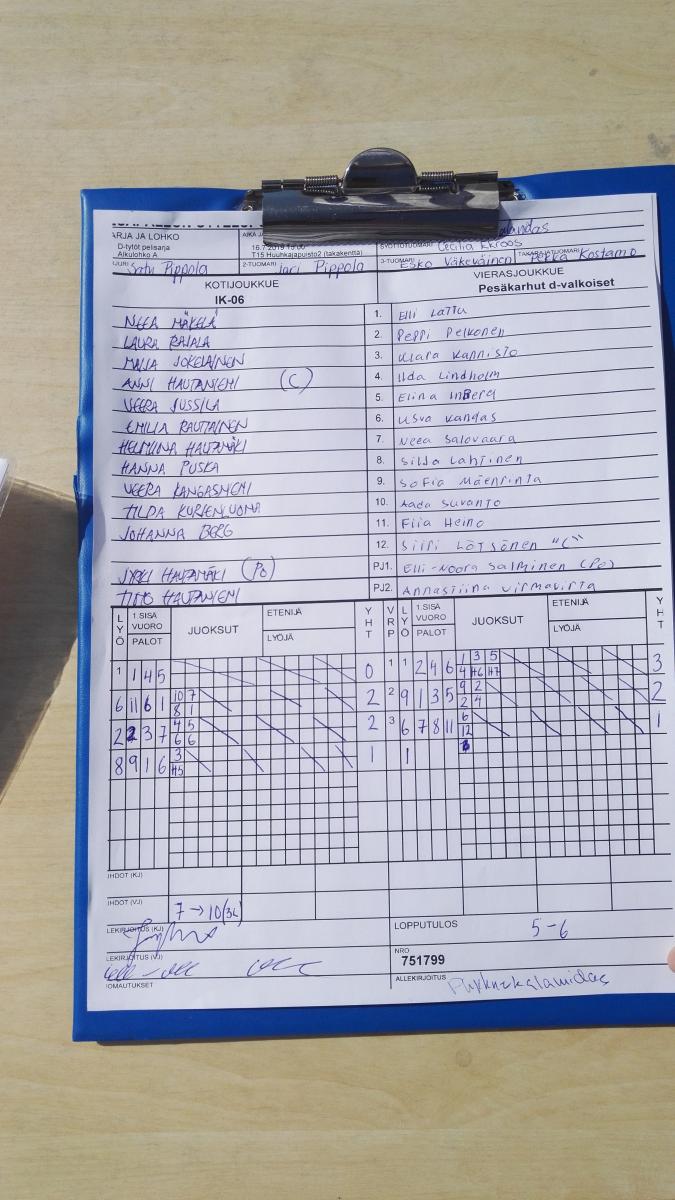 ARJA JA LOHKO
D-tytöt pelisarja
Alkulohko A
AIKA JA
16.7.2019
T15 Huuhkajapuisto2 (takakenttä)
SYÖTTÖTUOMARI Cecilia
2-TUOMARI Jari Pippola
3-TUOMARI Esko Väkeväinen
TAKARAJATUOMARI Pekka Kostamo
Satu Pippola
KOTIJOUKKUE
IK-06
VIERASJOUKKUE
Pesäkarhut d-valkoiset
NEEA MÄKELÄ
1. Elli Lattu
LAURA RAJALA
2. Peppi Pelkonen
MAIJA JOKELAINEN
3. Klara Kannisto
ANNI HAUTANIEMI (C)
4. Ilda Lindholm
VEERA JUSSILA
5. Elina Inberg
EMILIA RAUTIAINEN
6. Usva Kandas
HELMIINA HAUTAMÄKI
7. Neea Salovaara
HANNA PUSKA
8. Silja Lahtinen
VEERA KANGASNIEMI
9. Sofia Mäenrinta
TILDA KURJENLUOMA
10. Aada Suvanto
JOHANNA BERG
11. Fiia Heino
12. Siiri Lötjönen "C"
JYRKI HAUTAMÄKI (PJ)
PJ1. Elli-Noora Salminen (PJ)
TIMO HAUTANIEMI
PJ2. Annastiina Virmavirta
LYÖ 1.SISÄ VUORO PALOT JUOKSUT ETENIJÄ LYÖJÄ YHT VRP LYÖ 1.SISÄ VUORO PALOT JUOKSUT ETENIJÄ LYÖJÄ YHT
1 1 4 5 0 1 1 2 4 6 1 3 5 3
4 H6 H7
6 11 6 1 10 7 2 2 9 1 3 5 9 2 2
8 1 2 4
2 2 3 7 4 5 2 3 6 7 8 11 6 1
6 6 12
8 9 1 6 3 1 1
H5
IHDOT (KJ)
IHDOT (VJ)
7 → 10 (3L)
LEKIRJOITUS (KJ)
LOPPUTULOS 5-6
LEKIRJOITUS (VJ)
NRO
751799
OMAUTUKSET
ALLEKIRJOITUS